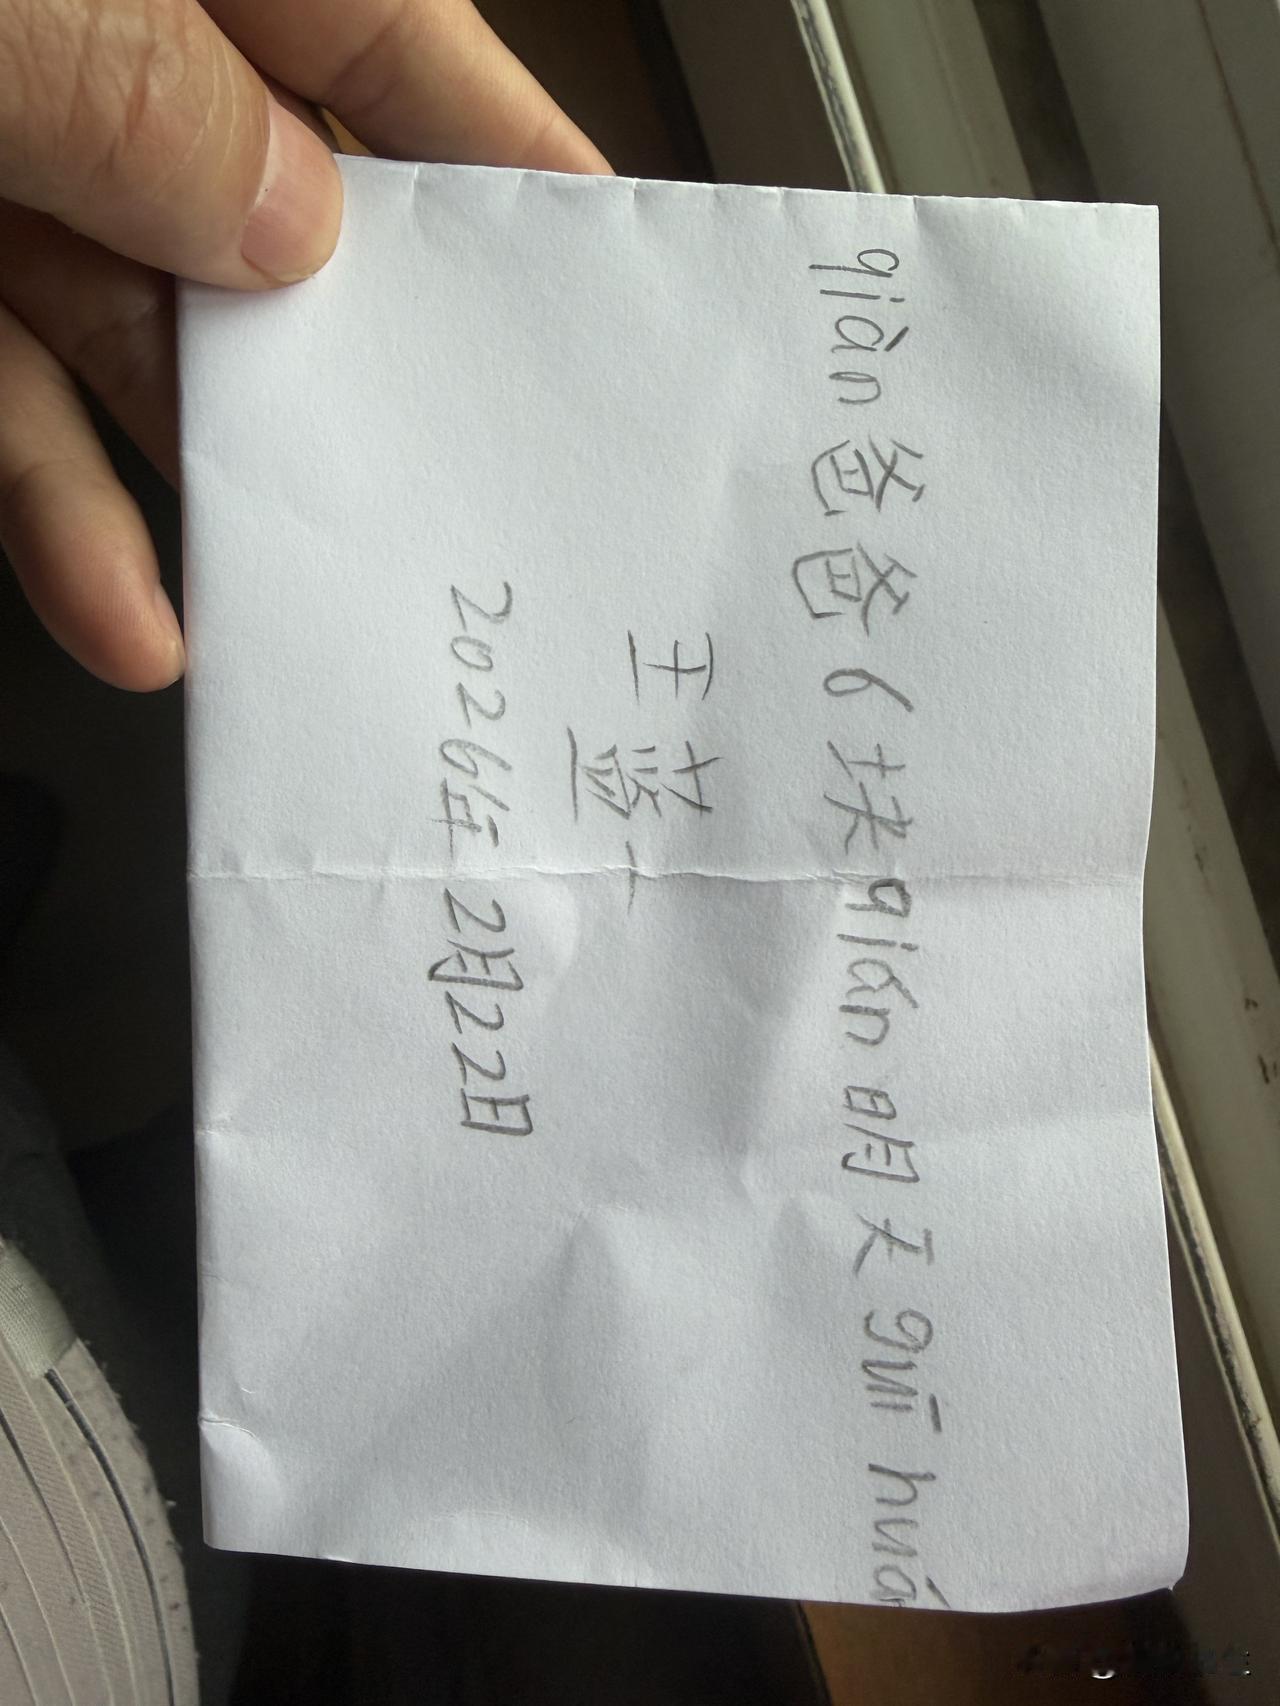 qiàn爸爸6块qián明天guī huá
王蓝一
2026年2月22日